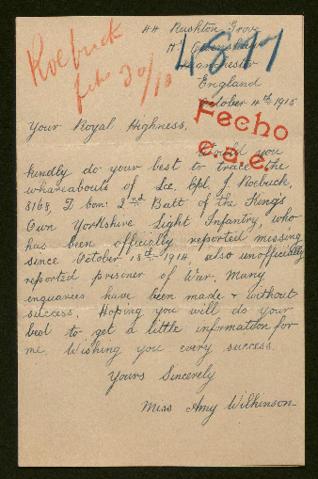 44 Rushton Grove
Roebuck
feho 30/10
4811
Manchester
England
October 4th 1915
Fecho
c.a.e.
Your Royal Highness,
Would you
kindly do your best to trace the
whareabouts of Lce, Cpl, J, Roebuck,
8168, D Con: 2nd Batt of the King's
Own Yorkshire Light Infantry, who
has been officially reported missing
since October 18th 1914, also unofficially
reported prisoner of War. Many
enquaries have been made & without
success. Hoping you will do your
best to get a little information for
me. Wishing you every success.
Yours Sincerely
Miss Amy Wilkinson